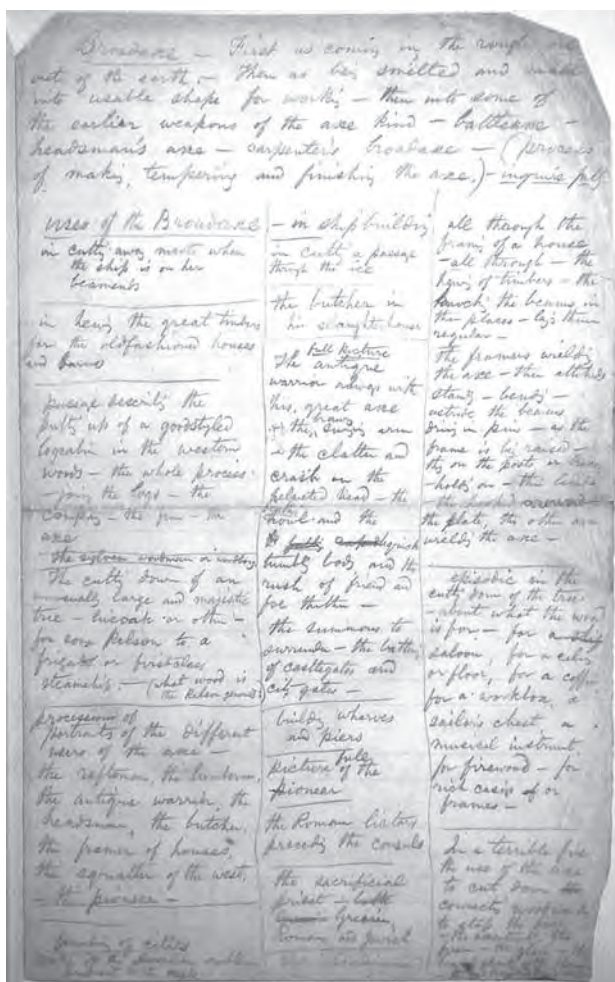 Broadaxe — First as coming in the rough ore
out of the earth, — Then as being smelted and made
into usable shape for working — then into some of
the earlier weapons of the axe kind — battleaxe —
headsman's axe — carpenter's broadaxe — (process
of making, tempering and finishing the axe.) — inquire fully
uses of the Broadaxe
in cutting away masts when
the ship is on her
beamends
in hewing the great timbers
for the oldfashioned houses
and barns
passage describing the
putting up of a goodstyled
logcabin in the western
woods — the whole process
— joining the logs — the
company — the fun — the
axe
The cutting down of an
unusually large and majestic
tree — liveoak or other —
for some kelson to a
frigate or firstclass
steamship. — (what wood is
the kelson generally)
processions of
portraits of the different
users of the axe —
the raftsman, the lumberman,
the antique warrior, the
headsman, the butcher,
the framer of houses,
the squatter of the west,
— the pioneer —
founding of cities
— in shipbuilding
in cutting a passage
through the ice
the butcher in
his slaughterhouse
Full Picture
The antique
warrior always with
his great axe
brawny
the swinging arm
the clatter and
crash on the
helmeted head — the
howl and the
tumbling body and the
rush of friend and
foe thither —
the summons to
surrender — the battering
of castlegates and
city gates —
building wharves
and piers
picture of the
pioneer
the Roman lictors
preceding the consuls
the sacrificial
priest —
Grecian,
Roman and Jewish
all through the
framing of a house
— all through — the
hewing of timbers — the
the beams in
their places — laying them
regular —
The framers wielding
the axe — their attitudes
standing — bending —
astride the beams
driving in pins — as the
frame is being raised —
they on the posts or braces
— holding on —
the plate, the other arm
wields the axe —
episodic in the
cutting down of the tree
— about what the wood
is for — for a
saloon, for a ceiling
or floor, for a coffin
for a workbox, a
sailor's chest a
musical instrument
for firewood — for
rich casings or
frames —
In a terrible fire
the use of the axe
to cut down the
connecting woodwork
to stop the fire